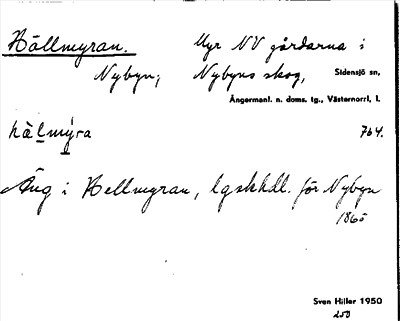 Hällmyran. Myr NV gårdarna i
Nybyn; Nybyns skog, Sidensjö sn,
Ångermanl. n. doms. tg., Västernorrl, l.
hälmýra 764.
Äng i Hellmyran, lgskhdl. för Nybyn
1865
Sven Hiller 1950
250